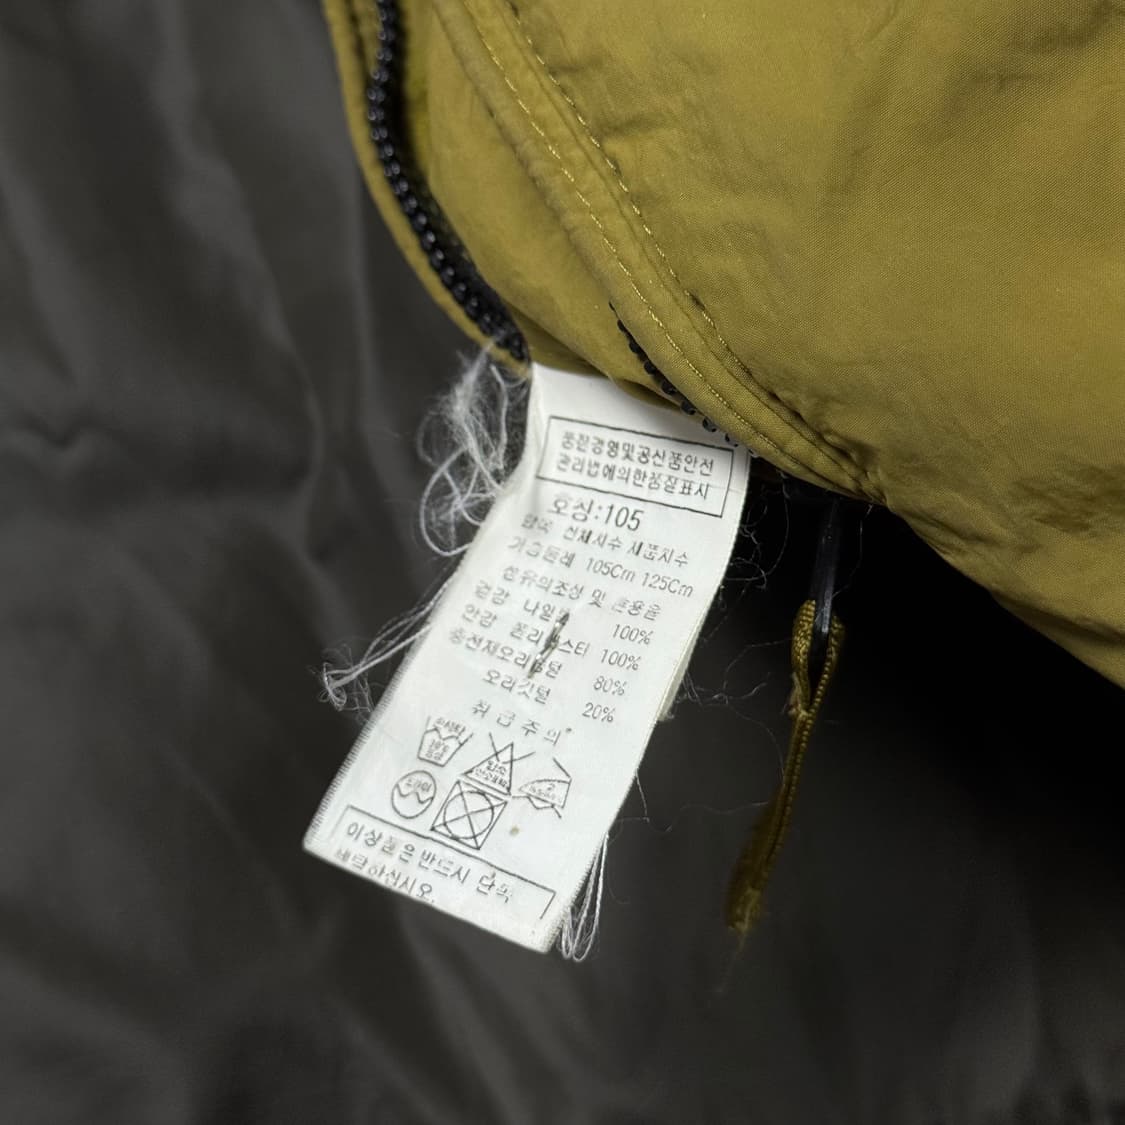 품질경영및공산품안전
관리법에의한품질표시
호칭:105
항목 신체치수 제품치수
가슴둘레 105Cm 125Cm
섬유의조성 및 혼용율
겉감 나일론 100%
안감 폴리에스터 100%
충전재오리솜털 80%
오리깃털 20%
취급주의
2
이상품은반드시 단독
세탁하십시오.